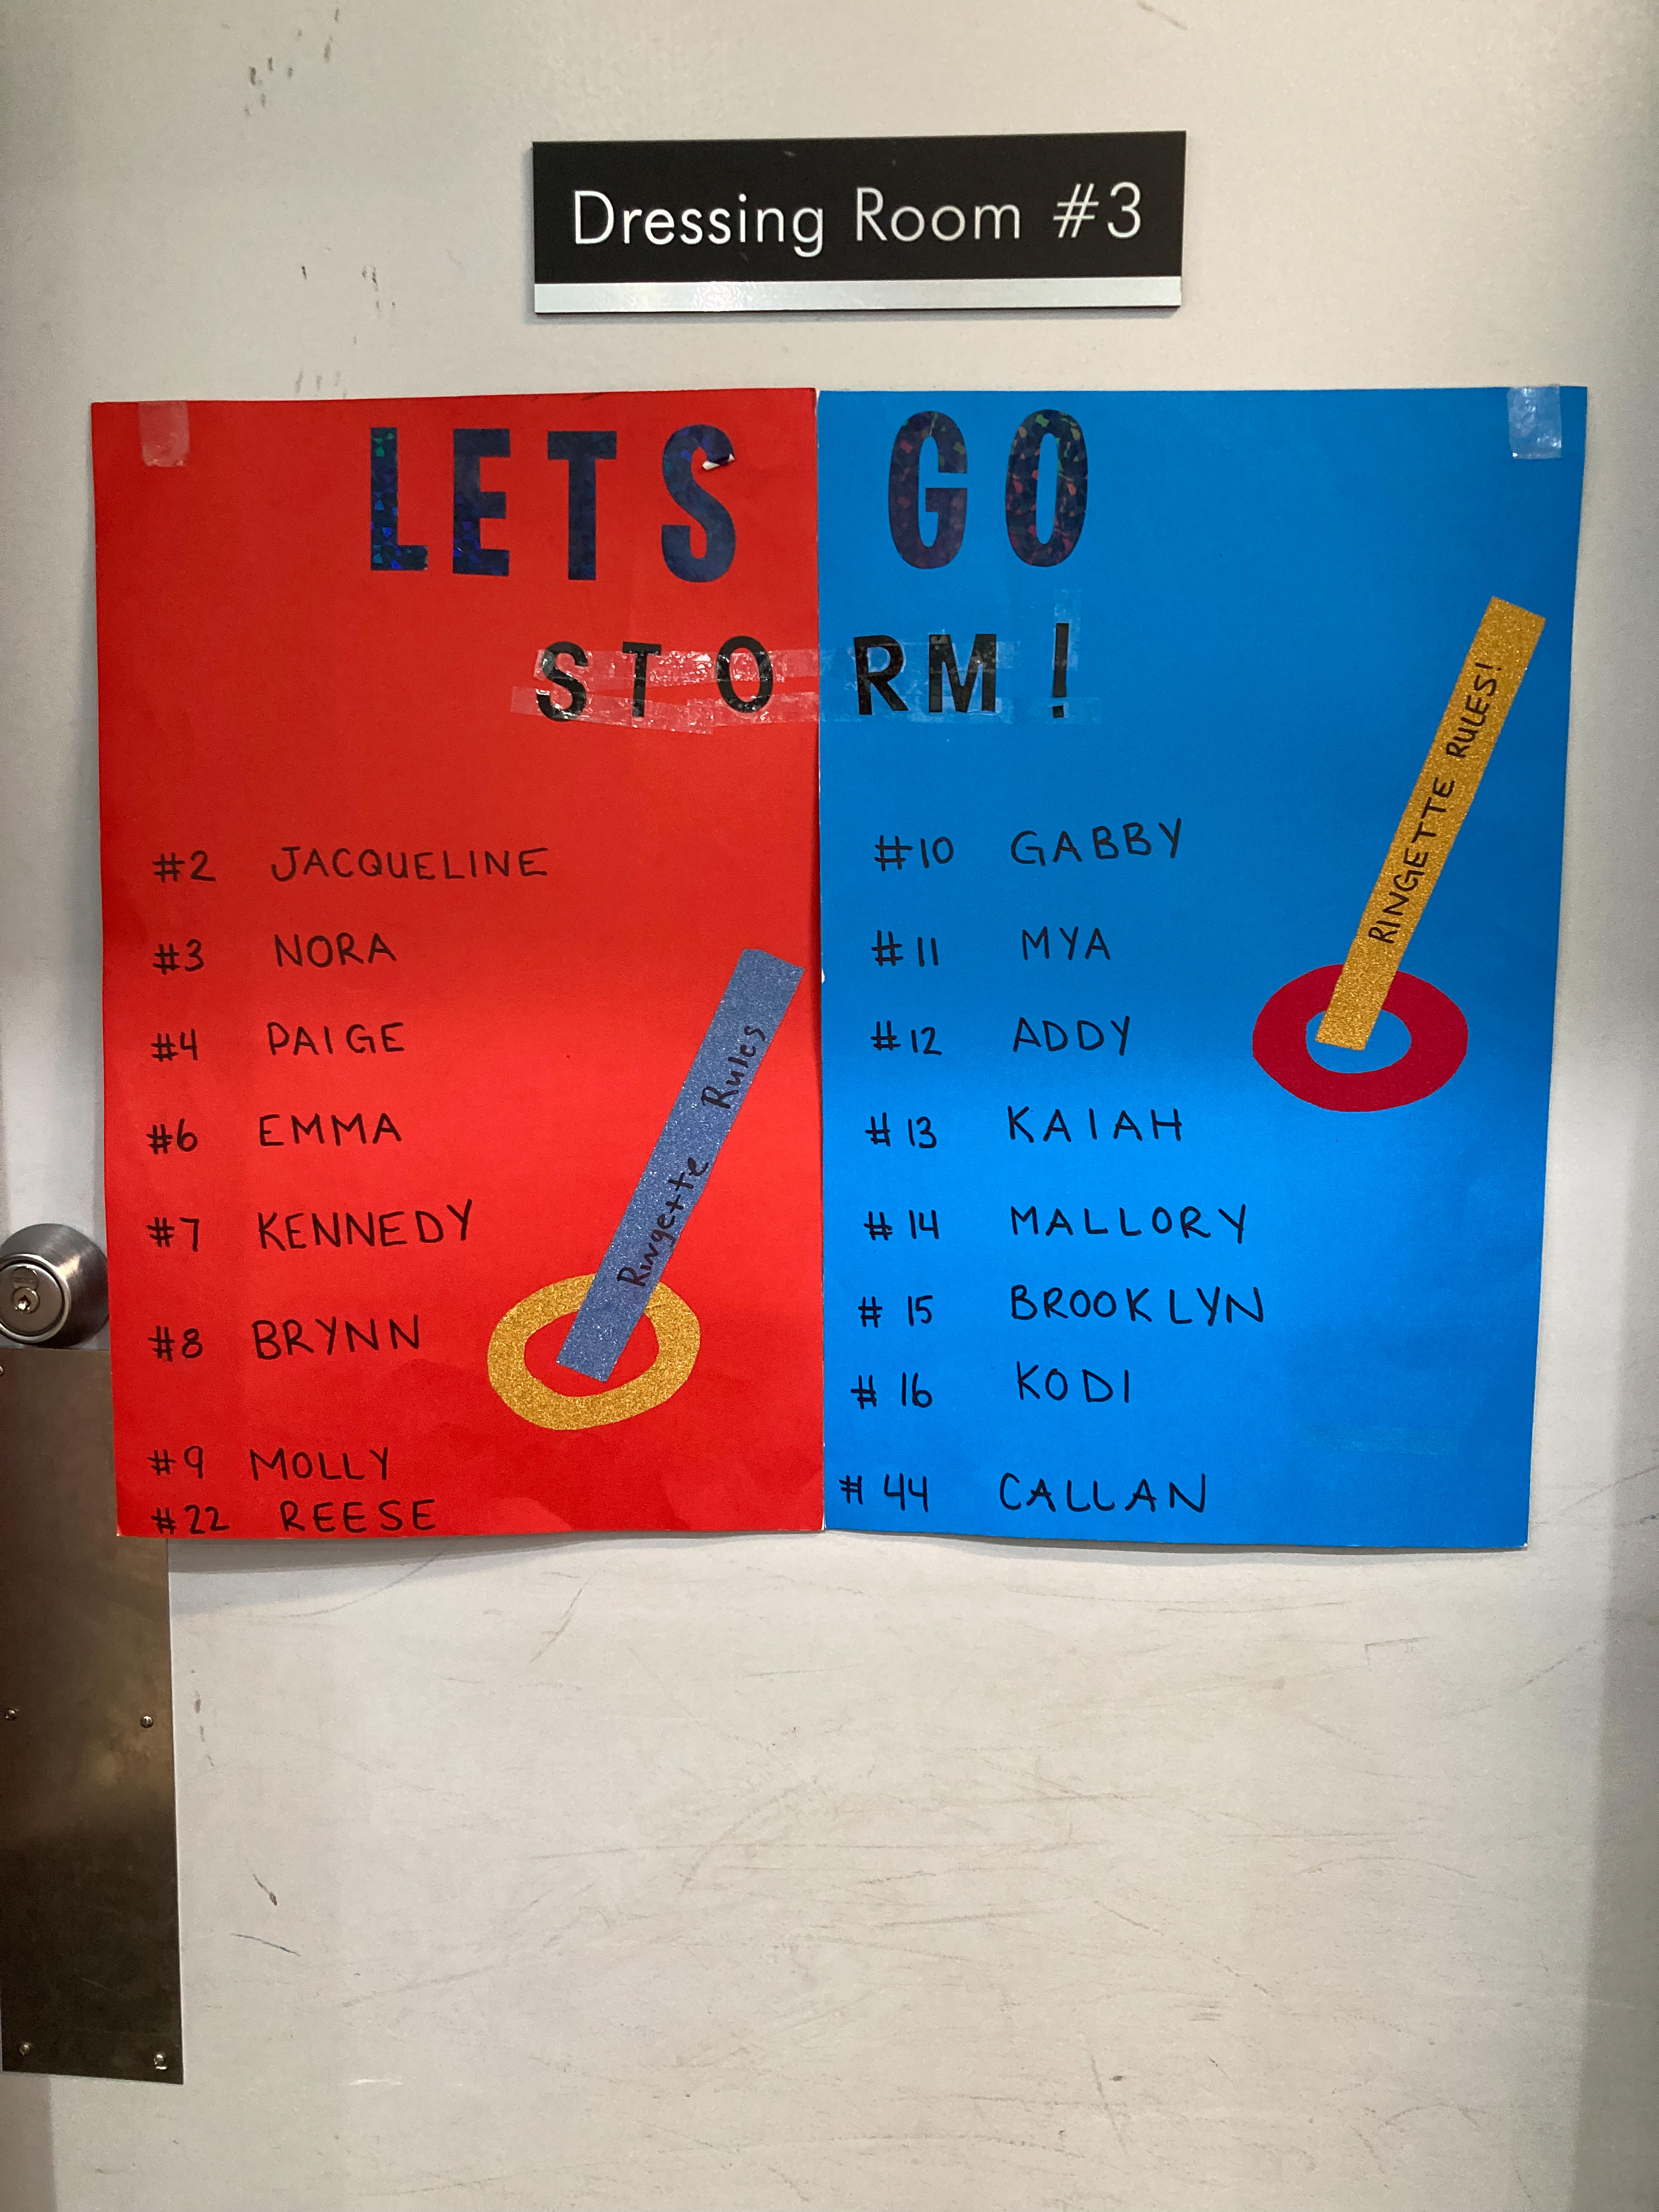 Dressing Room #3
LETS GO
STORM!
#2 JACQUELINE
#3 NORA
#4 PAIGE
#6 EMMA
#7 KENNEDY
#8 BRYNN
#9 MOLLY
#22 REESE
Ringette Rules
#10 GABBY
#11 MYA
#12 ADDY
#13 KAIAH
#14 MALLORY
#15 BROOKLYN
#16 KODI
#44 CALLAN
RINGETTE RULES!